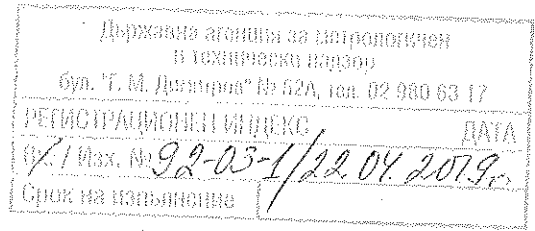 Държавна агенция за метрологичен
и технически надзор
бул. "Г. М. Димитров" № 52А, тел. 02 980 63 17
РЕГИСТРАЦИОНЕН ИНДЕКС ДАТА
Вх. / Изх. № 92-03-1/22.04.2019г.
Срок на изпълнение